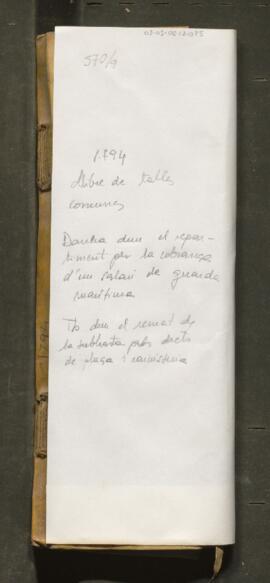 570/9
1794
Llibre de talles
comunes
Darrera duu el repar-
timent per la cobrança
d'un salari de guarda
marítima
Tb duu el remat de
la subhasta pels drets
de plaça i carnisseria
1794